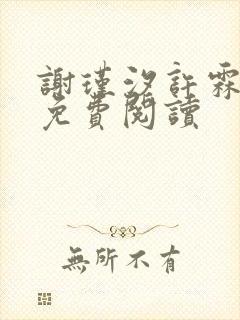 謝瑾汐許霖
免費閱讀
無所不有